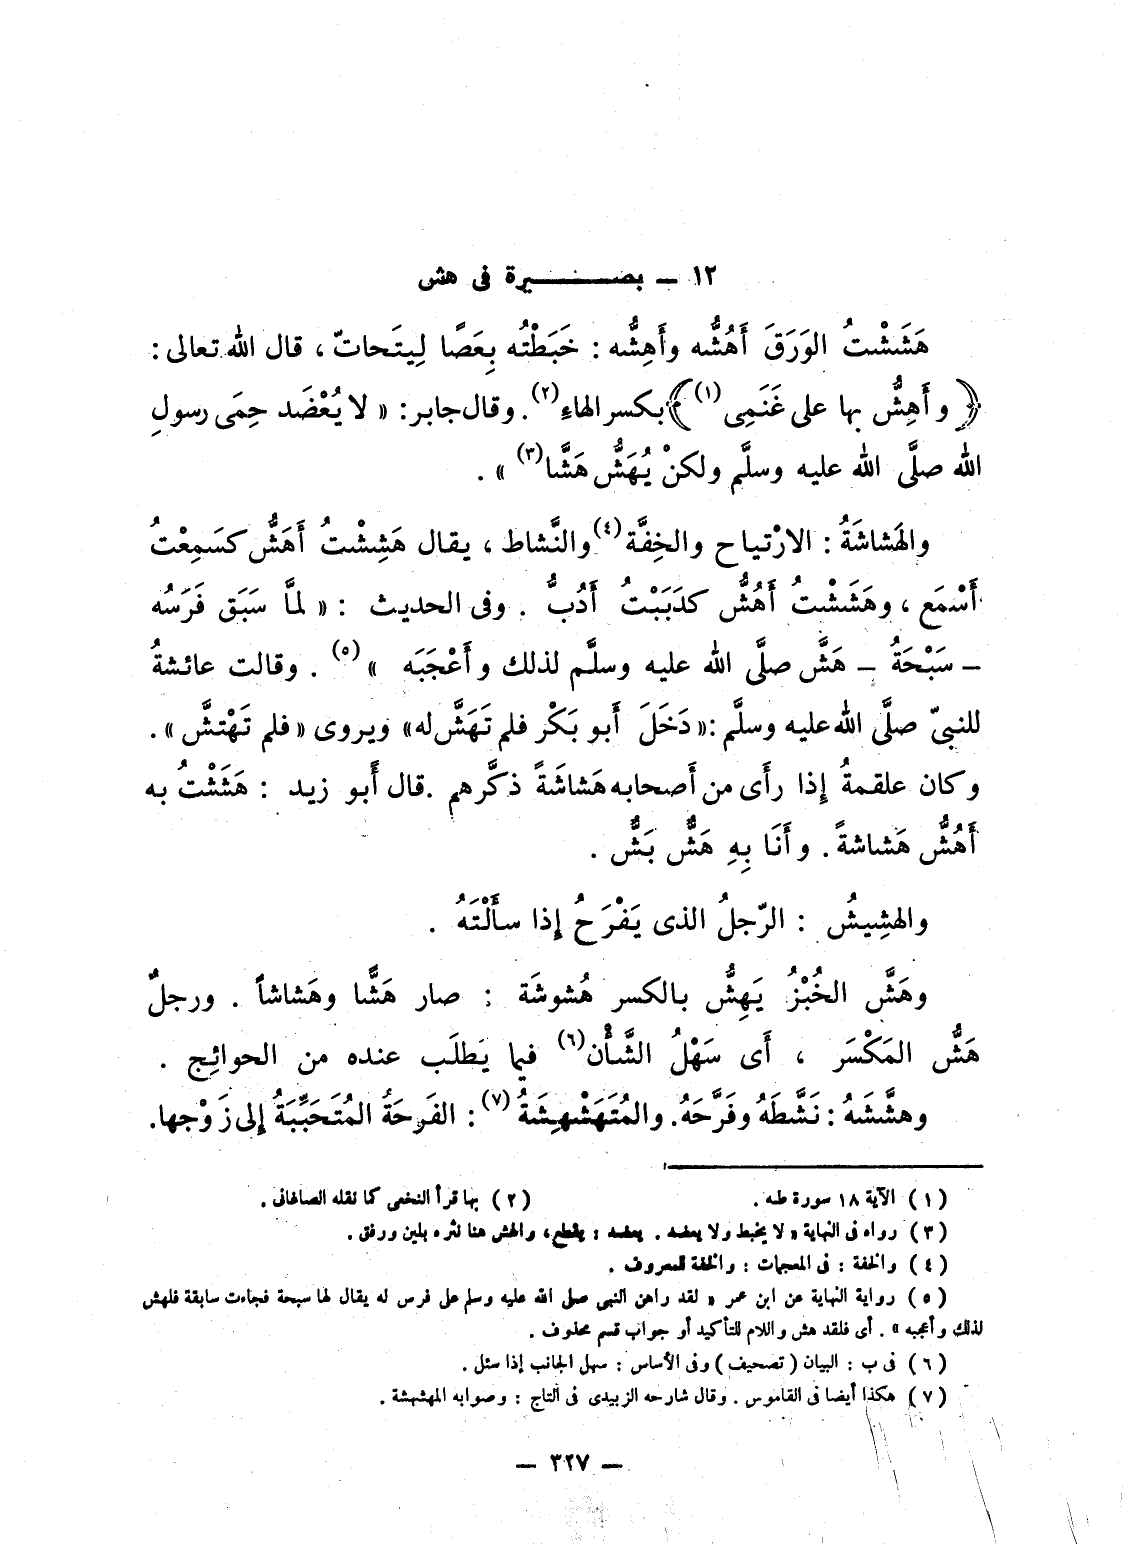 ١٢ ـ بصـــــــيرة فى هش
هَشَشْتُ الوَرَقَ أَهُشُّه وأَهِشُّه : خَبَطْتُه بِعَصًا لِيتَحاتّ ، قال الله تعالى :
﴿ وأَهِشُّ بها على غَنَمِى(١) ﴾ بكسر الهاءِ(٢). وقال جابر : « لا يُعْضَد حِمَى رسولِ
الله صلَّى الله عليه وسلَّم ولكنْ يُهَشُّ هَشَّا(٣) » .
والهَشاشَةُ : الارْتياح والخِفَّة(٤) والنَّشاط ، يقال هَشِشْتُ أَهَشُّ كسَمِعْتُ
أَسْمَع ، وهَشَشْتُ أَهُشُّ كدَبَبْتُ أَدُبُّ . وفى الحديث : « لمَّا سَبَق فَرَسُه
ـ سَبْحَةُ ـ هَشَّ صلَّى الله عليه وسلَّم لذلك وأَعْجَبَه »(٥) . وقالت عائشةُ
للنبىّ صلَّى الله عليه وسلَّم : « دَخَلَ أَبو بَكْر فلم تَهَشَّ له» ويروى « فلم تَهْتشَّ » .
وكان علقمةُ إِذا رأَى من أَصحابه هَشاشَةً ذكَّرهم . قال أَبو زيد : هَشَشْتُ به
أَهُشُّ هَشاشةً . وأَنَا بِهِ هَشُّ بَشٌّ .
والهشِيشُ : الرّجلُ الذى يَفْرَحُ إِذا سأَلْتَهُ .
وهَشَّ الخُبْزُ يَهِشُّ بالكسر هُشوشَة : صار هَشًّا وهَشاشاً . ورجلٌ
هَشُّ المَكْسَر ، أَى سَهْلُ الشَّأْن(٦) فيما يَطلَب عنده من الحوائِج .
وهشَّشَهُ : نَشَّطَهُ وفَرَّحَهُ. والمُتَهَشْهِشَةُ(٧) : الفَرِحَةُ المُتَحَبِّبَةُ إِلى زَوْجها.
(١) الآية ١٨ سورة طه .
(٢) بها قرأ النخعى كما نقله الصاغانى .
(٣) رواه فى النهاية « لا يخبط ولا يعضد . يعضد : يقطع، والهش هنا نثره بلين ورفق .
(٤) والخفة : فى المعجمات : والخفة للمعروف .
(٥) رواية النهاية عن ابن عمر « لقد راهن النبى صلى الله عليه وسلم على فرس له يقال لها سبحة فجاءت سابقة فلهش
لذلك وأعجبه » . أى فلقد هش واللام للتأكيد أو جواب قسم محذوف .
(٦) فى ب : البيان (تصحيف) وفى الأساس : سهل الجانب إذا سئل .
(٧) هكذا أيضا فى القاموس . وقال شارحه الزبيدى فى التاج : وصوابه المهشهشة .
ـ ٣٢٧ ـ